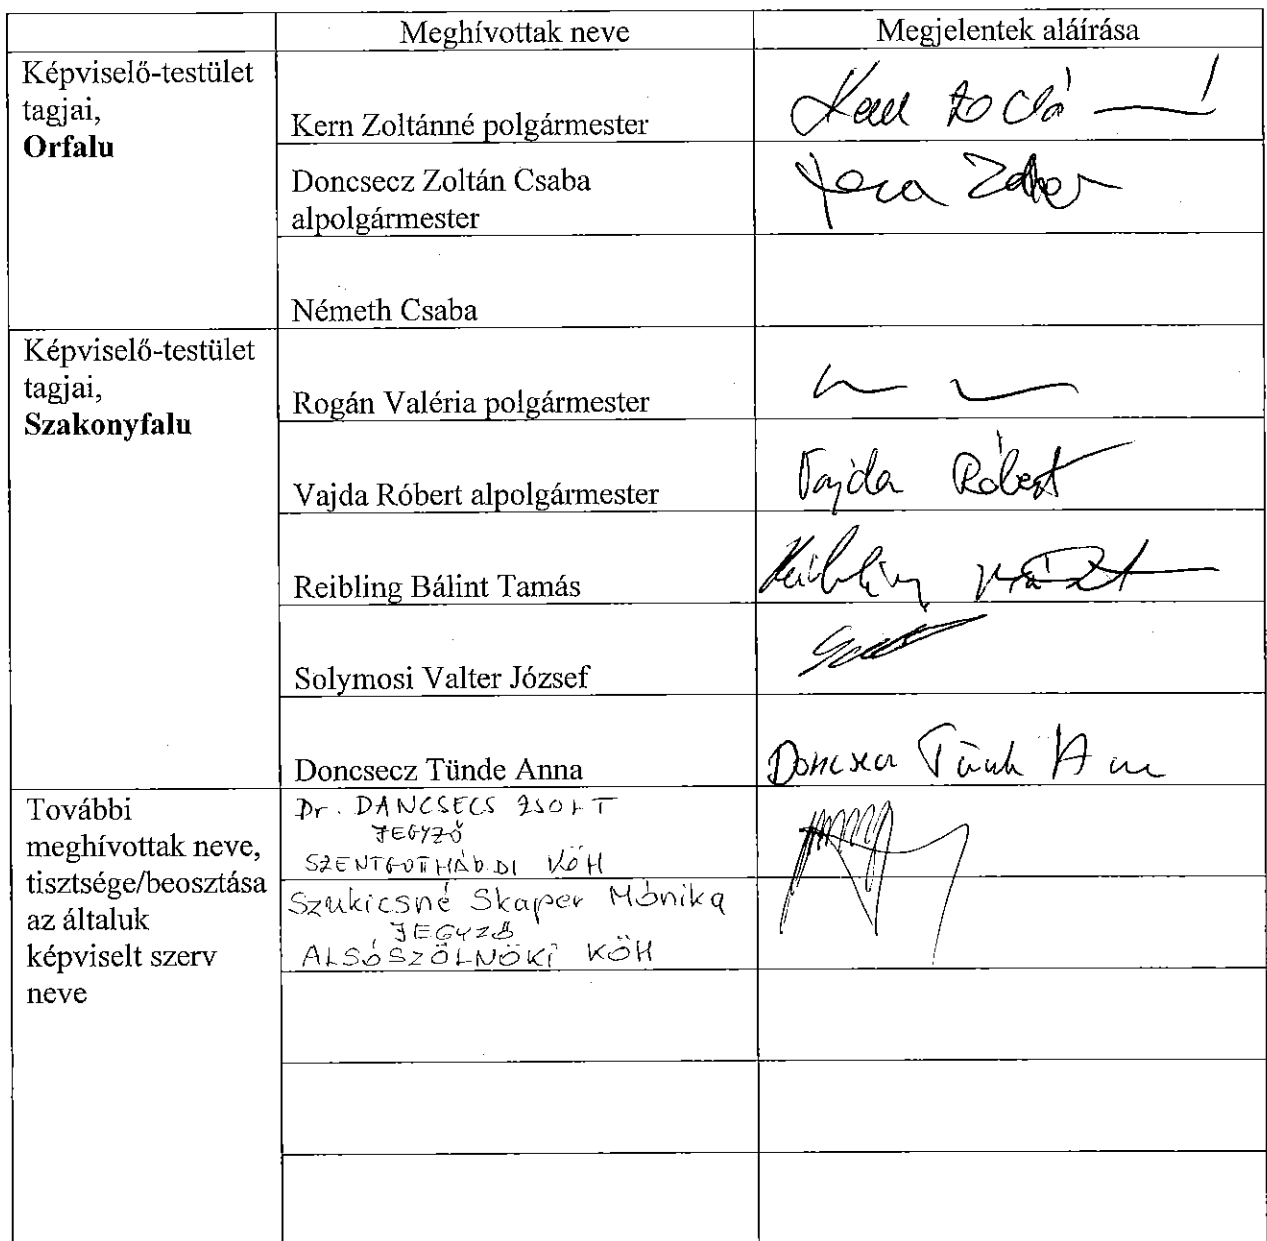 Meghívottak neve
Megjelentek aláírása
Képviselő-testület
tagjai,
Orfalu
Kern Zoltánné polgármester
Doncsecz Zoltán Csaba
alpolgármester
Németh Csaba
Képviselő-testület
tagjai,
Szakonyfalu
Rogán Valéria polgármester
Vajda Róbert alpolgármester
Vajda Róbert
Reibling Bálint Tamás
Solymosi Valter József
Doncsecz Tünde Anna
További
meghívottak neve,
tisztsége/beosztása
az általuk
képviselt szerv
neve
Dr. DANCSECS ZSOLT
JEGYZŐ
KÖH
Szukicsné Skaper Mónika
JEGYZŐ
ALSÓSZÖLNÖKI KÖH